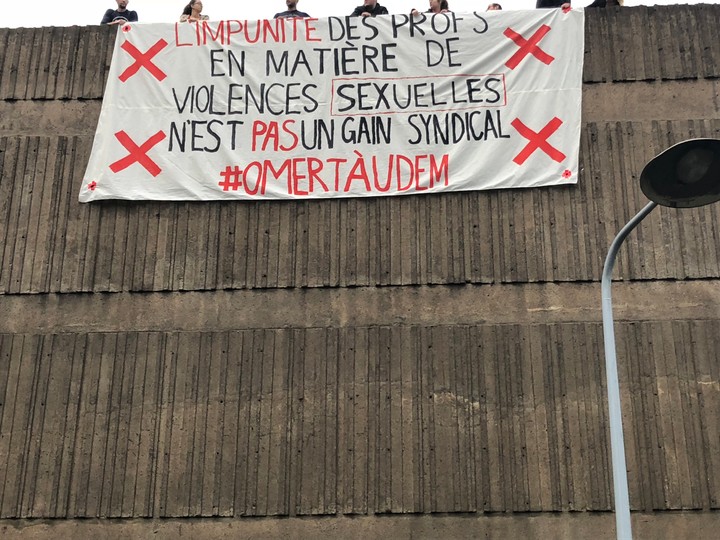 L'IMPUNITÉ DES PROFS
EN MATIÈRE DE
VIOLENCES SEXUELLES
N'EST PAS UN GAIN SYNDICAL
#OMERTÀUDEM